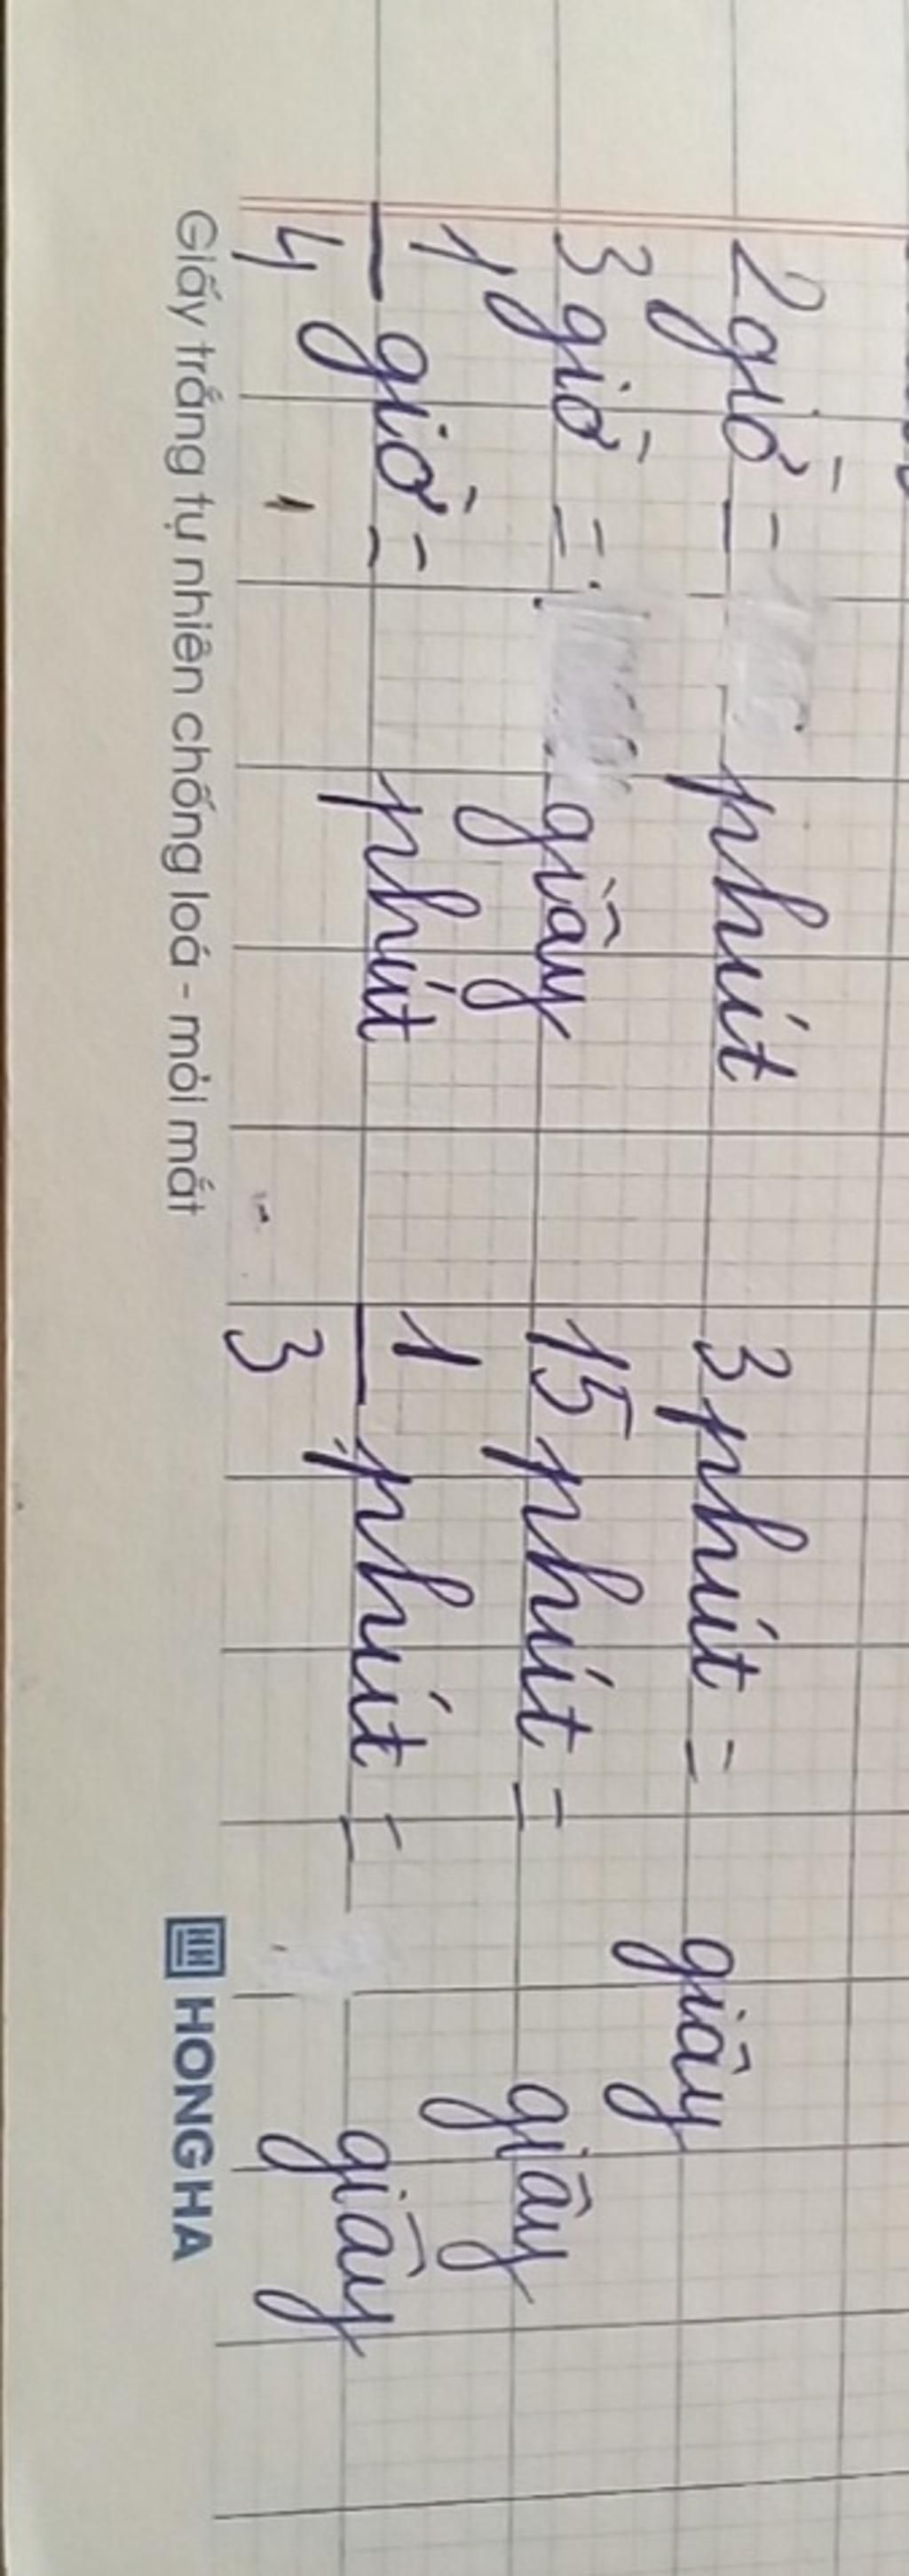 2 giờ = phút 3 phút = giây
3 giờ = giây 15 phút = giây
1/4 giờ = phút 1/3 phút = giây
Giấy trắng tự nhiên chống loá - mỏi mắt HONG HA